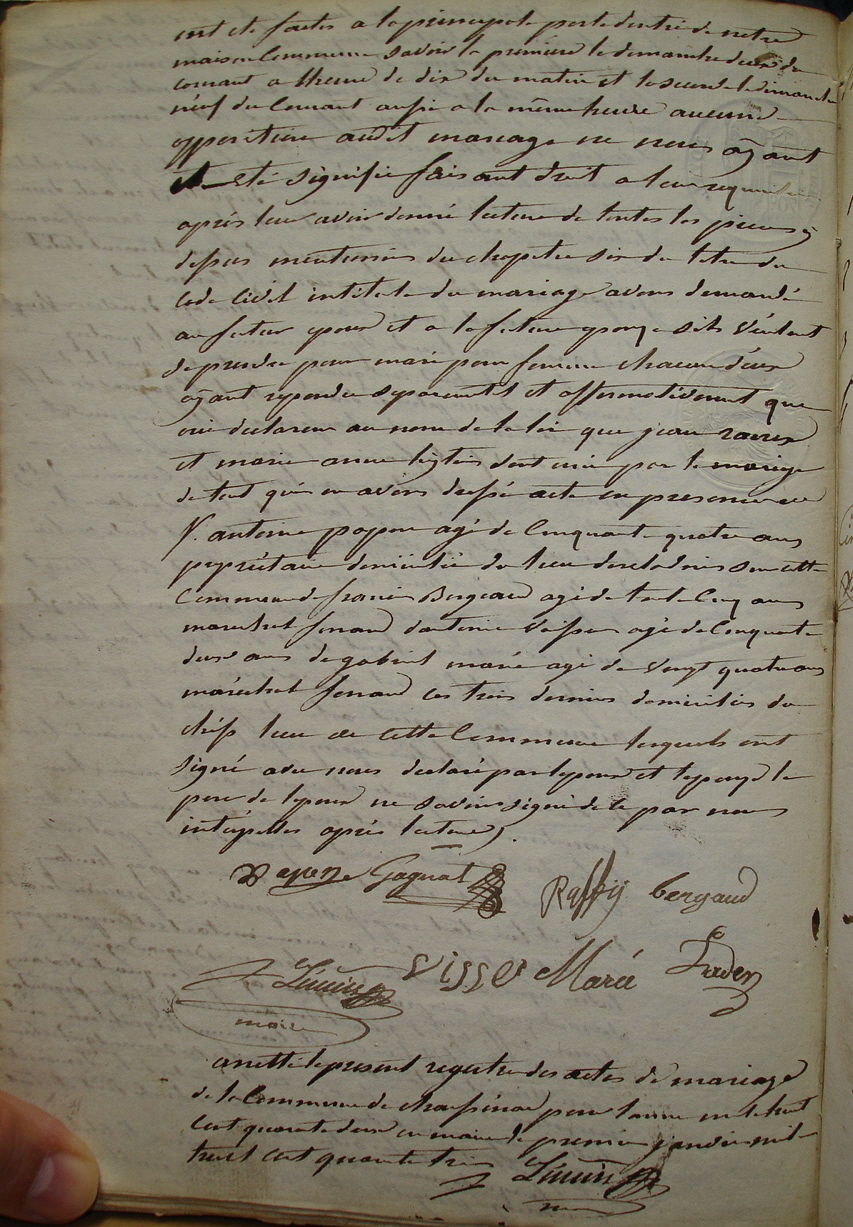 ont été faites a la principale porte dentré de notre
maison Commune savoir la premiere le dimanche deux du
courant a lheure de dix du matin et la seconde le dimanche
neuf du Courant aussi a la même heure aucune
opposition audit mariage ne nous ayant
été signifié faisant droit a leur requisition
après leur avoir donné lecture de toutes les pieces
depus mentionnées du chapitre six du titre du
code Civil intitulé du mariage avons demandé
au futur epoux et a la future epouze sils veulent
se prendre pour mari pour femme chacun deux
ayant repondu separement et affirmativement que
oui declarons au nom de la loi que jean
et marie anne sont unis par le mariage
de tout quoi en avons dressé acte en presence de
antoine papon agé de Cinquante quatre ans
propriétaire domicilié du lieu sur cette
Commune de francois Bergeaud agé de trente Cinq ans
marechal ferrand dantoine visser agé de Cinquante
deux ans de gabriel marié agé de vingt quatre ans
maréchal ferrand ces trois derniers domiciliés du
chef lieu de cette Commune lesquels ont
signé avec nous declaré par lepoux et lepouze le
pere de lepoux ne savoir signé de ce par nous
intérpellés après lecture
Papon Gagnat Raffy bergaud
Visser Marié
maire
arretté le present registre des actes de mariage
de la Commune de pour lannée mil huit
Cent quarante deux en mairie le premier janvier mil
huit Cent quarante trois